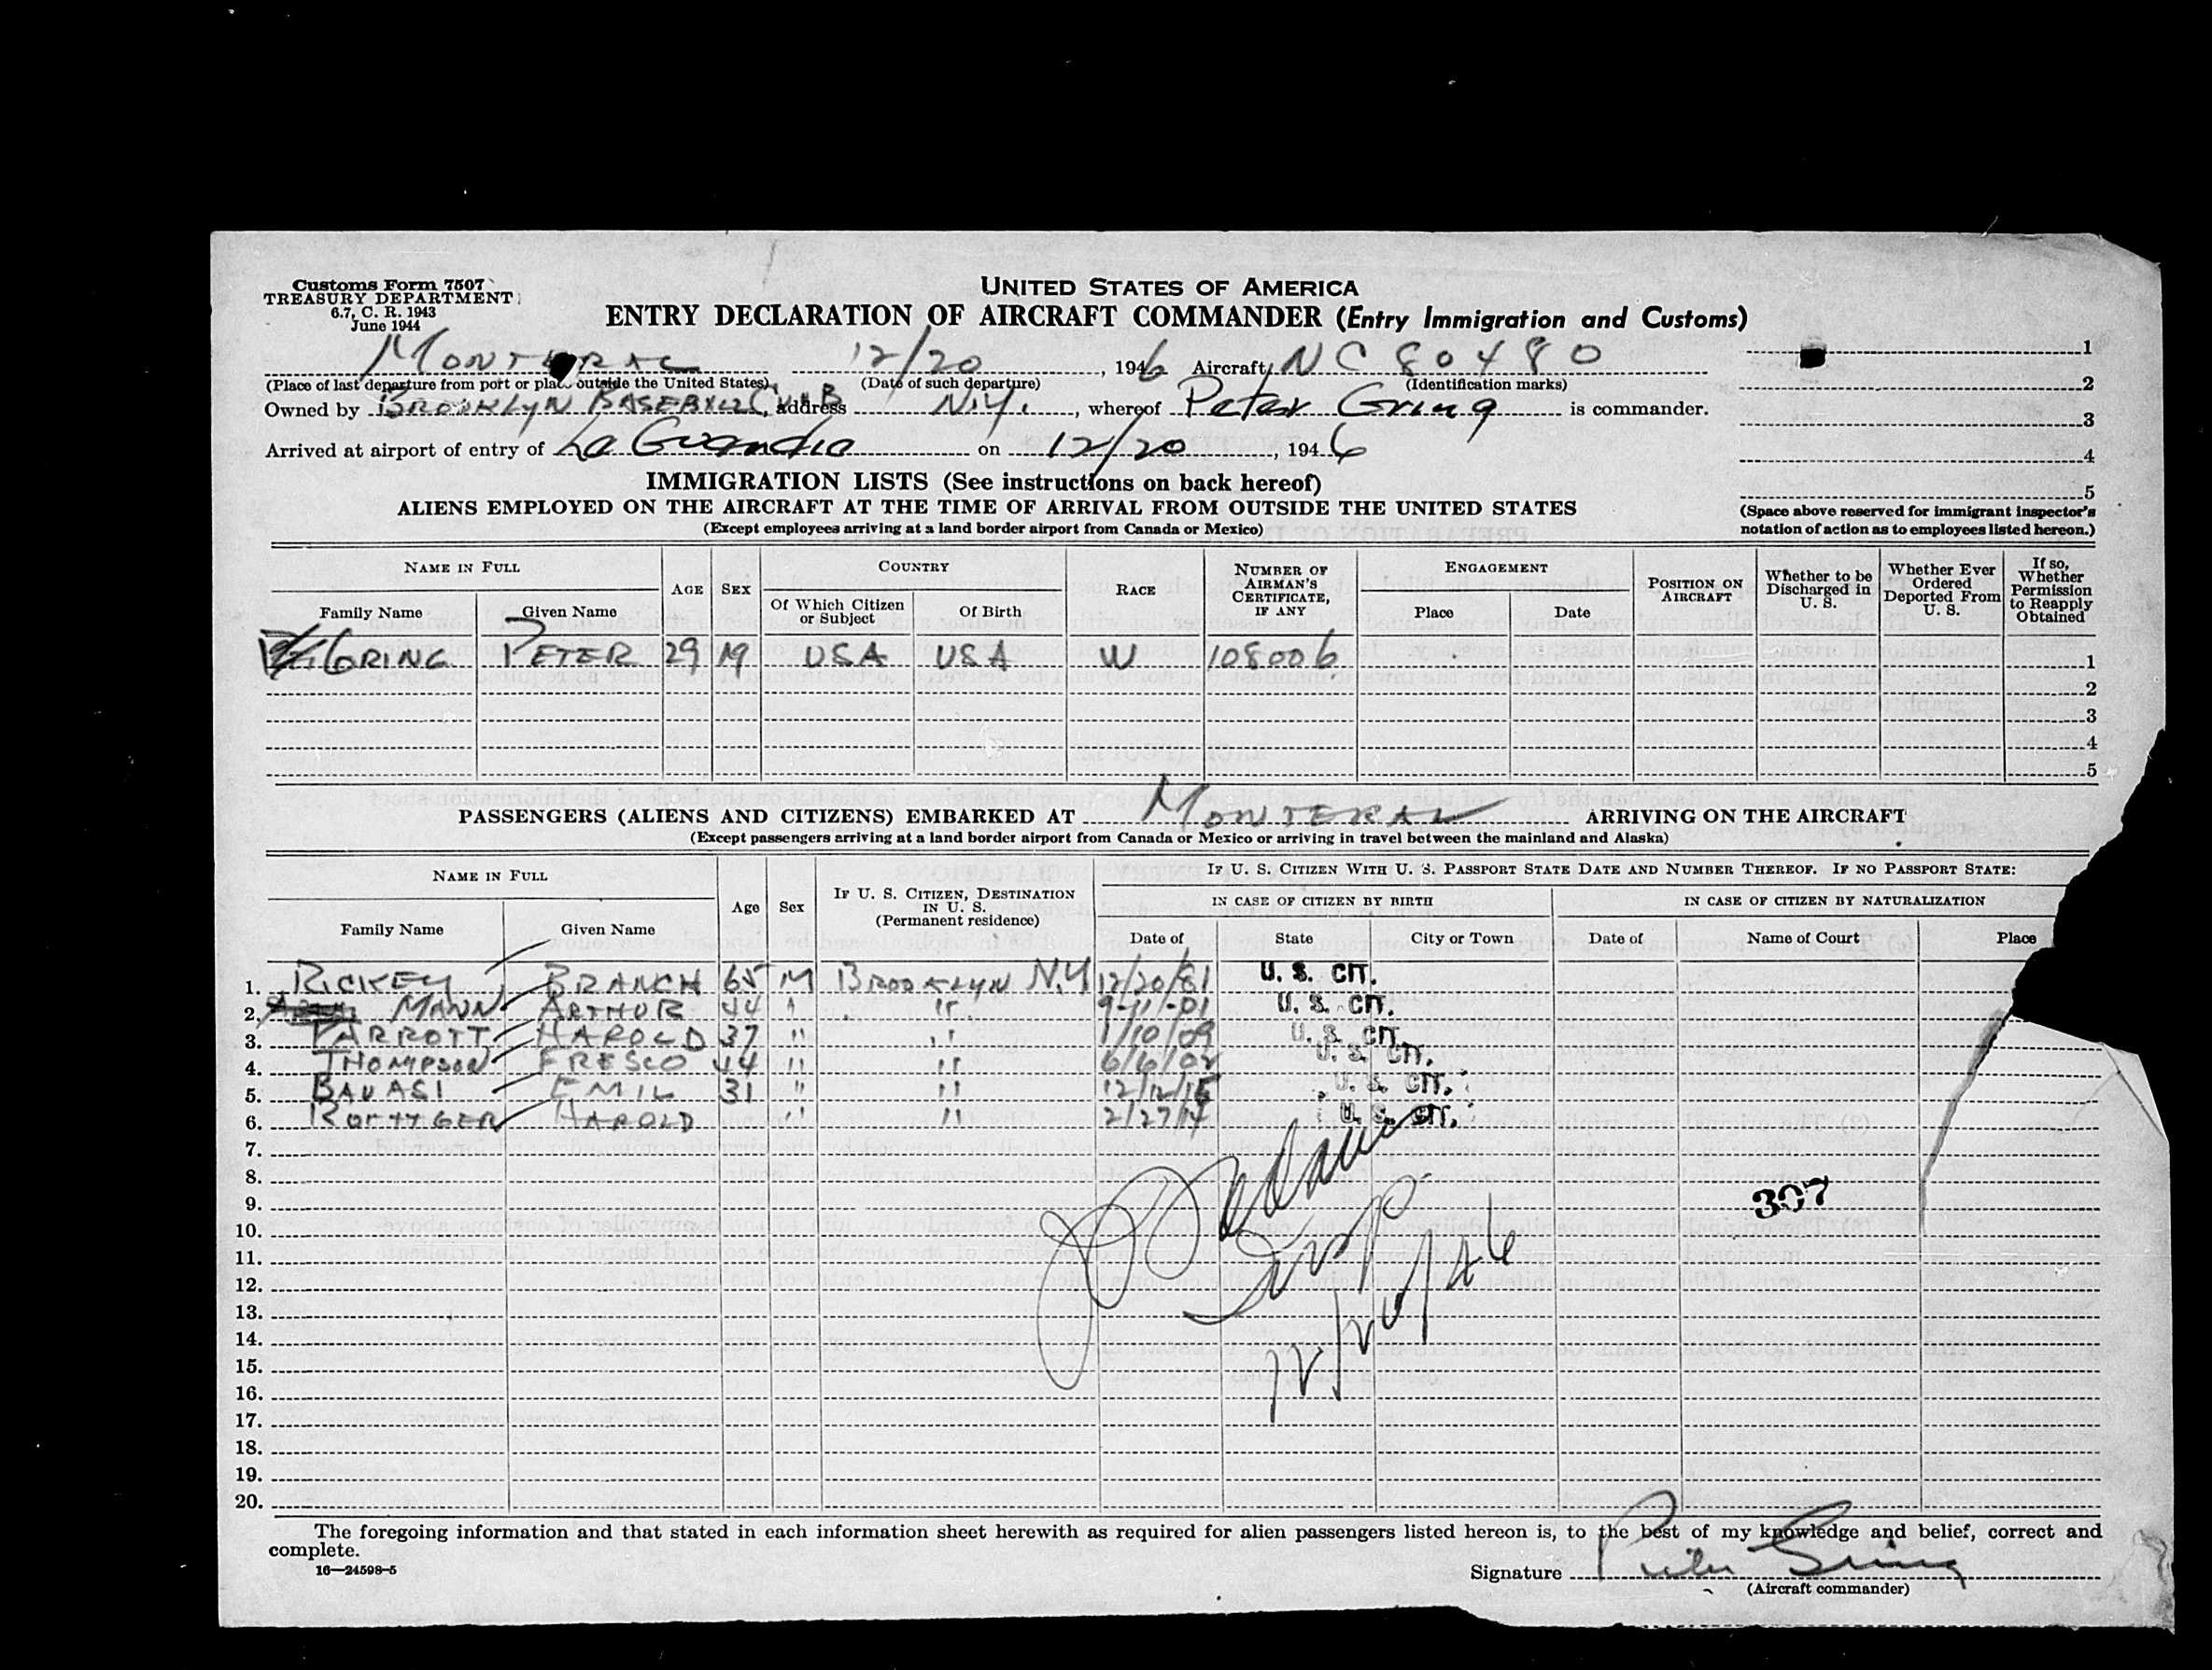 Customs Form 7507
TREASURY DEPARTMENT
6.7, C. R. 1943
June 1944
UNITED STATES OF AMERICA
ENTRY DECLARATION OF AIRCRAFT COMMANDER (Entry Immigration and Customs)
MONTERAL 12/20, 1946 Aircraft NC 80480
(Place of last departure from port or place outside the United States) (Date of such departure) (Identification marks)
Owned by BROOKLYN BASEBALL CLUB, address N.Y., whereof Peter Gring is commander.
Arrived at airport of entry of La Guardia on 12/20, 1946
1
2
3
4
5
(Space above reserved for immigrant inspector's
notation of action as to employees listed hereon.)
IMMIGRATION LISTS (See instructions on back hereof)
ALIENS EMPLOYED ON THE AIRCRAFT AT THE TIME OF ARRIVAL FROM OUTSIDE THE UNITED STATES
(Except employees arriving at a land border airport from Canada or Mexico)
NAME IN FULL AGE SEX COUNTRY RACE NUMBER OF AIRMAN'S CERTIFICATE, IF ANY ENGAGEMENT POSITION ON AIRCRAFT Whether to be Discharged in U. S. Whether Ever Ordered Deported From U. S. If so, Whether Permission to Reapply Obtained
Family Name Given Name Of Which Citizen or Subject Of Birth Place Date
GRING PETER 29 M USA USA W 108006 1
2
3
4
5
PASSENGERS (ALIENS AND CITIZENS) EMBARKED AT MONTERAL ARRIVING ON THE AIRCRAFT
(Except passengers arriving at a land border airport from Canada or Mexico or arriving in travel between the mainland and Alaska)
NAME IN FULL Age Sex IF U. S. CITIZEN, DESTINATION IN U. S. (Permanent residence) IF U. S. CITIZEN WITH U. S. PASSPORT STATE DATE AND NUMBER THEREOF. IF NO PASSPORT STATE:
IN CASE OF CITIZEN BY BIRTH IN CASE OF CITIZEN BY NATURALIZATION
Family Name Given Name Date of State City or Town Date of Name of Court Place
1. RICKEY BRANCH 65 M BROOKLYN N.Y 12/20/81 U. S. CIT.
2. MANN ARTHUR 44 " " 9-11-01 U. S. CIT.
3. PARROTT HAROLD 37 " " 1/10/09 U. S. CIT.
4. THOMPSON FRESCO 44 " " 6/6/02 U. S. CIT.
5. BAVASI EMIL 31 " " 12/12/15 U. S. CIT.
6. ROETTGER HAROLD " " 2/27/14 U. S. CIT.
7.
8.
9. 307
10.
11.
12.
13. 12/20/46
14.
15.
16.
17.
18.
19.
20.
The foregoing information and that stated in each information sheet herewith as required for alien passengers listed hereon is, to the best of my knowledge and belief, correct and
complete.
16—24598-5
Signature Peter Gring
(Aircraft commander)